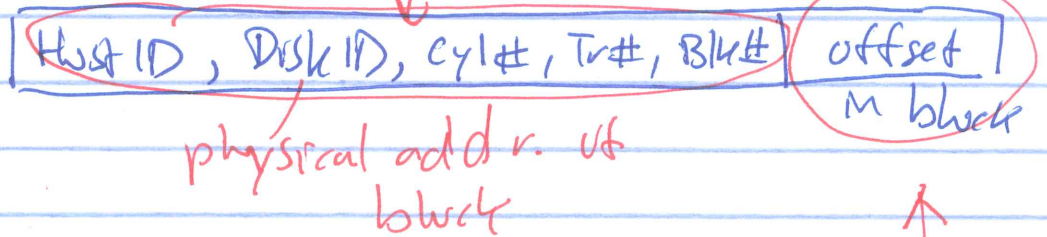 Host ID, Disk ID, Cyl#, Tr#, Blk# offset
in block
physical addr. of
block